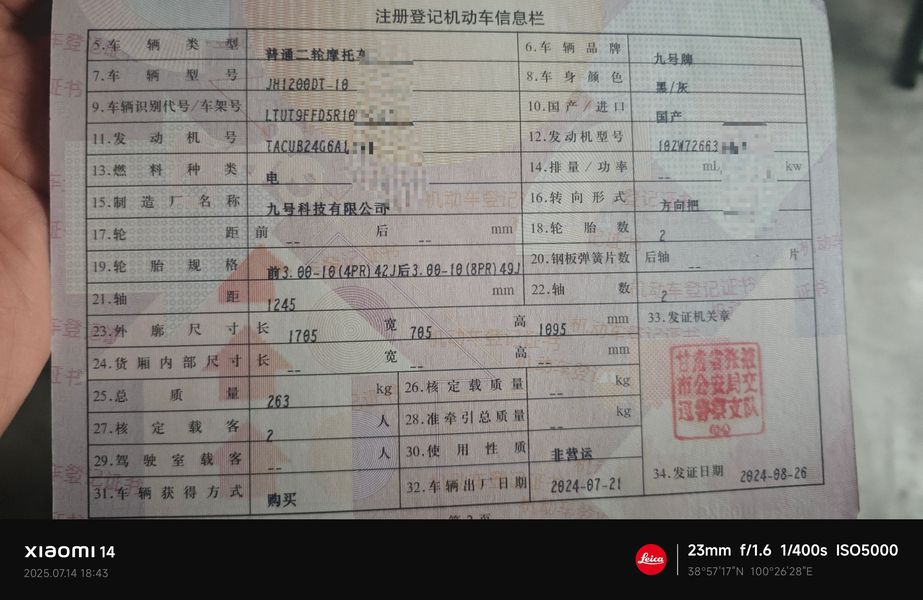 注册登记机动车信息栏
5.车辆类型 普通二轮摩托车 6.车辆品牌 九号牌
7.车辆型号 JH1200DT-10 8.车身颜色 黑/灰
9.车辆识别代号/车架号 LTUT9FFD5R10 10.国产/进口 国产
11.发动机号 TACUB24G6A1 12.发动机型号 10ZW72663
13.燃料种类 电 14.排量/功率 -- mL kw
15.制造厂名称 九号科技有限公司 16.转向形式 方向把
17.轮距 前 -- 后 -- mm 18.轮胎数 2
19.轮胎规格 前3.00-10(4PR)42J后3.00-10(8PR)49J 20.钢板弹簧片数 后轴 -- 片
21.轴距 1245 mm 22.轴数 2
23.外廓尺寸 长 1705 宽 705 高 1095 mm 33.发证机关章
24.货厢内部尺寸 长 -- 宽 -- 高 -- mm
25.总质量 263 kg 26.核定载质量 -- kg
27.核定载客 2 人 28.准牵引总质量 -- kg
29.驾驶室载客 -- 人 30.使用性质 非营运
31.车辆获得方式 购买 32.车辆出厂日期 2024-07-21 34.发证日期 2024-08-26
XIAOMI 14
2025.07.14 18:43
Leica
23mm f/1.6 1/400s ISO5000
38°57'17"N 100°26'28"E